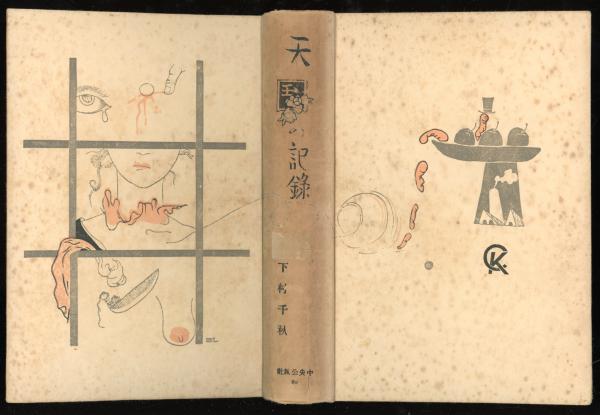 天
国
の記錄
下村千秋
中央公論社版
CK